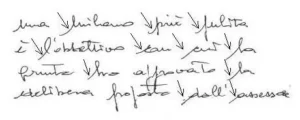 una Milano più pulita
è l'obbiettivo con cui la
giunta ha approvato la
delibera proposta dall'assesso